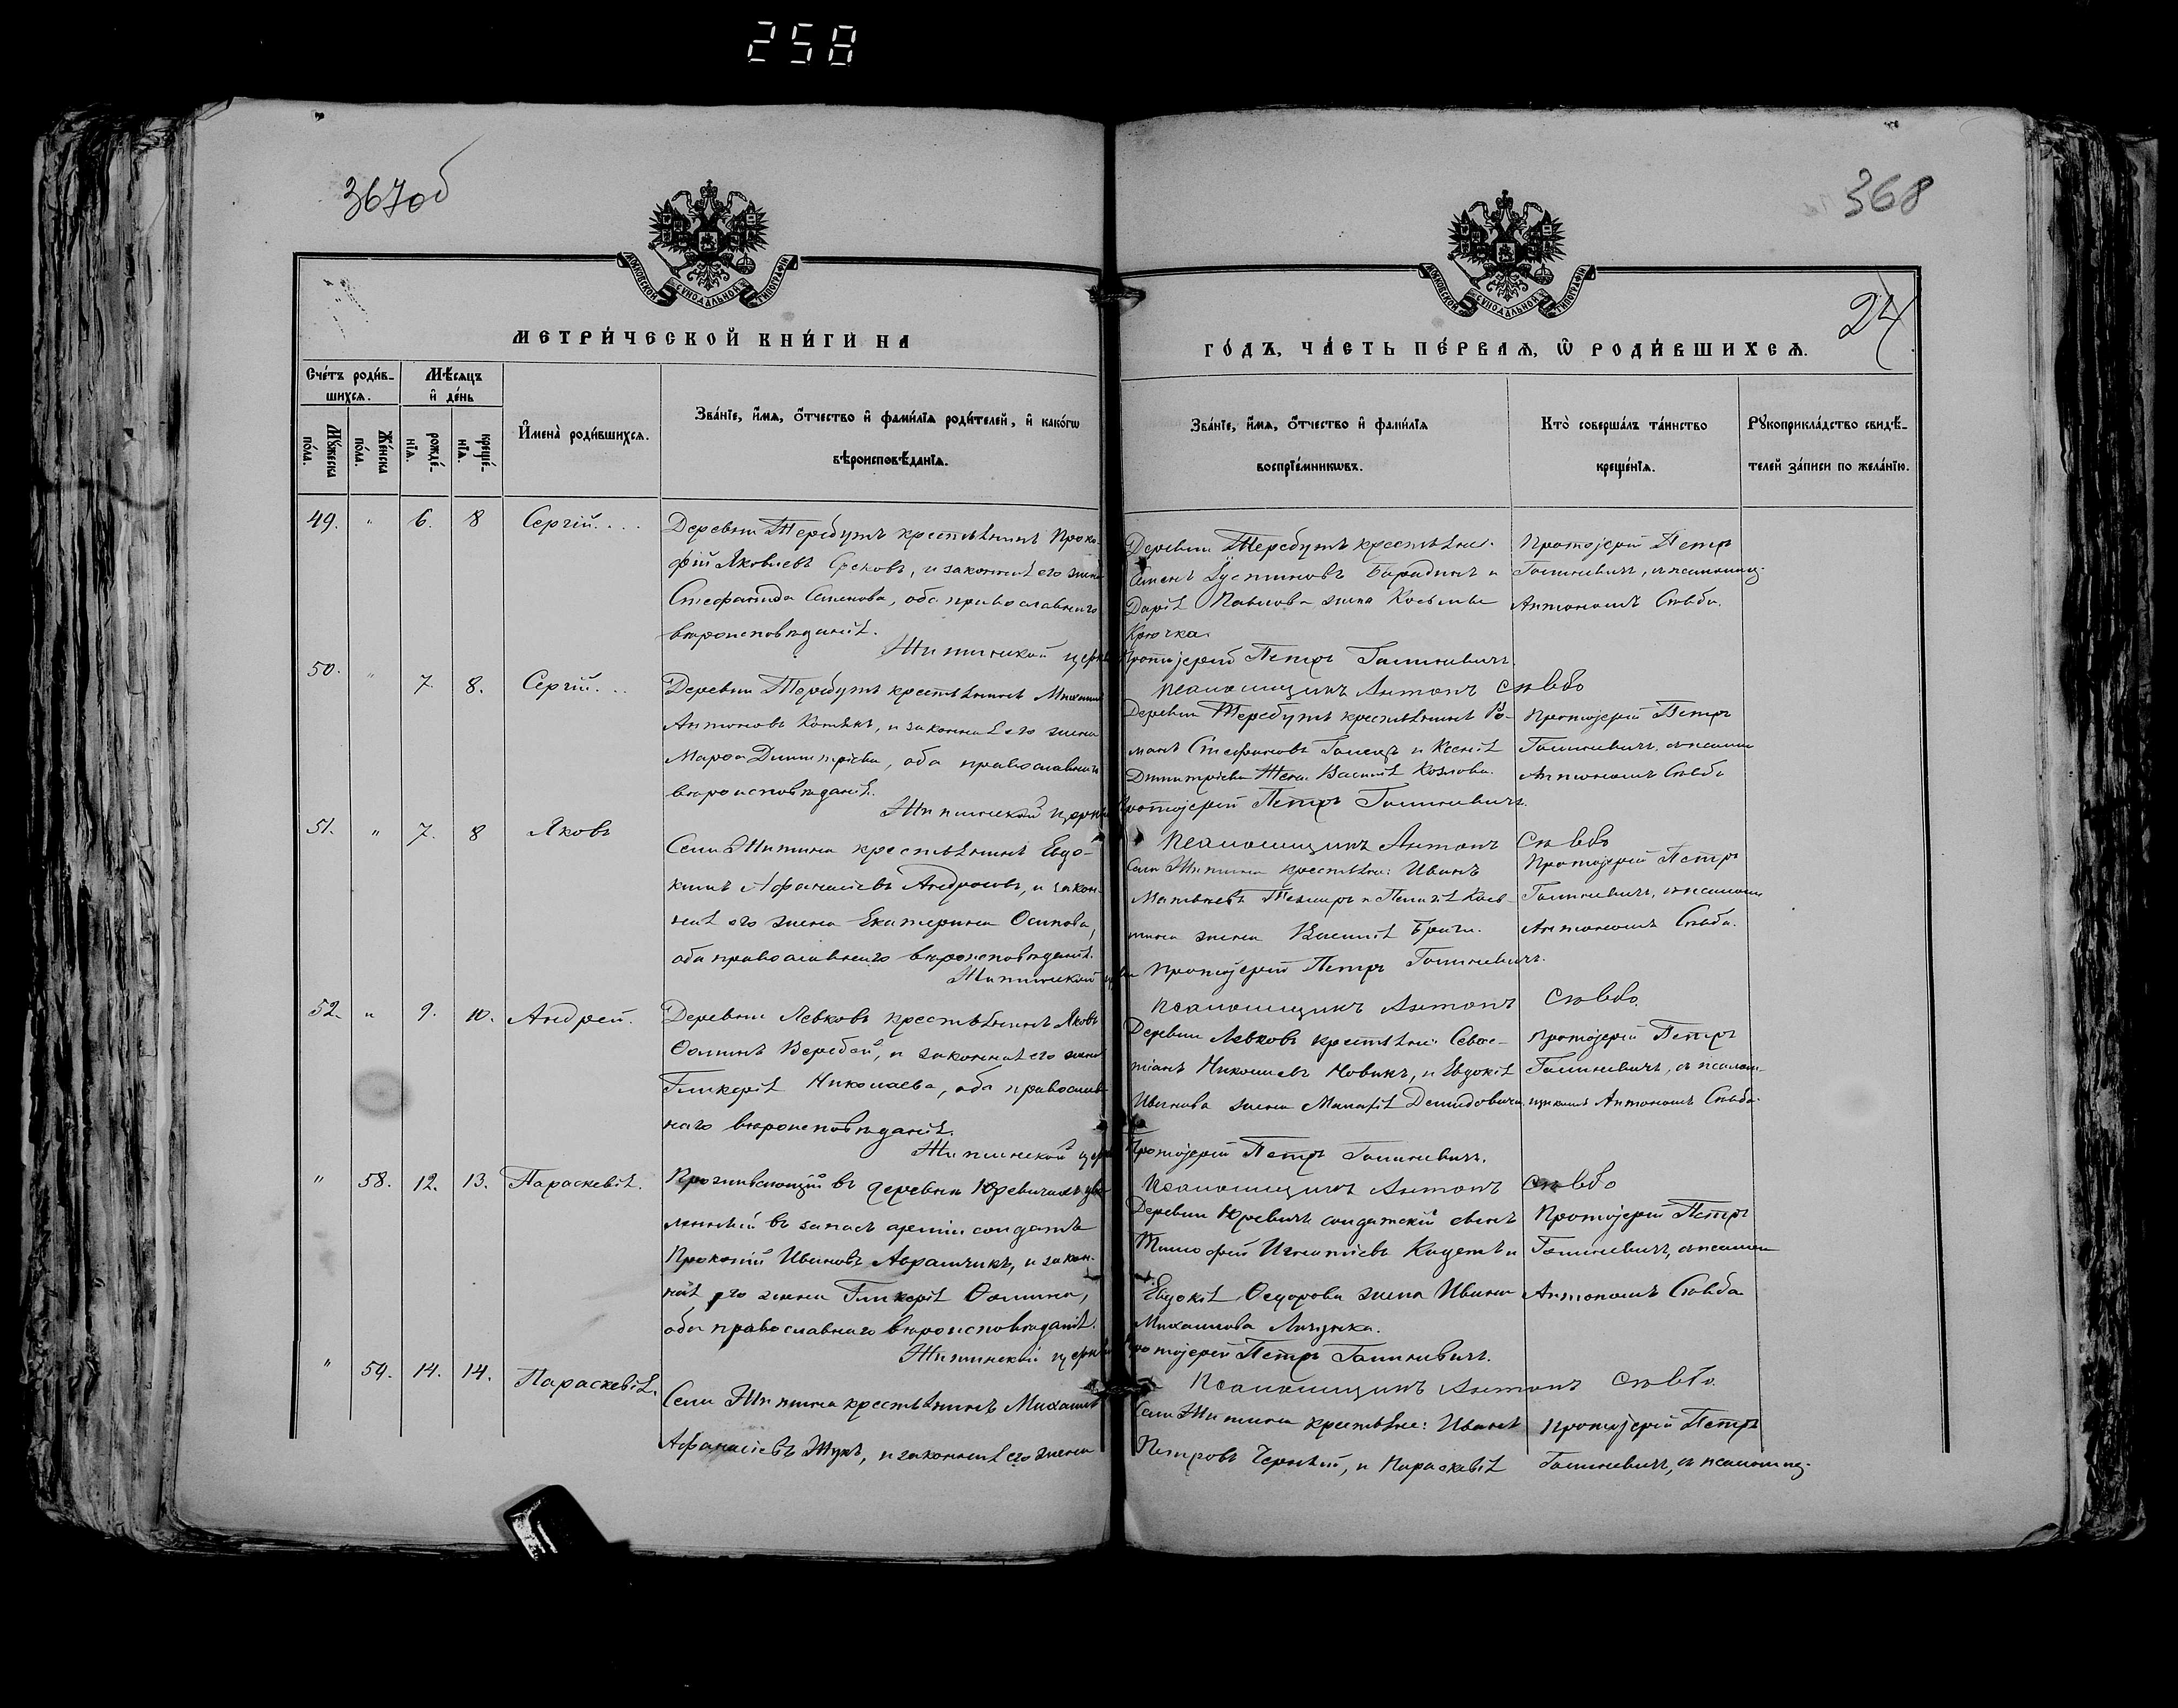 258
367об
368
24
МОСКОВСКОЙ СУНОДАЛЬНОЙ ТИПОГРАФІИ
МОСКОВСКОЙ СУНОДАЛЬНОЙ ТИПОГРАФІИ
МЕТРИ́ЧЕСКОЙ КНИ́ГИ НА
ГО́ДЪ, ЧА́СТЬ ПЕ́РВАѦ, Ѿ РОДИ́ВШИХСѦ.
Сче́тъ роди́в-
шихсѧ.
Мꙋ́жеска по́ла.
Же́нска по́ла.
Мѣ́сѧцъ
и҆ де́нь
рожде́-
нїѧ.
креще́-
нїѧ.
И҆мена̀ роди́вшихсѧ.
Зва́нїе, и҆́мѧ, ѻ҆́тчество и҆ фами́лїѧ роди́телей, и҆ како́гѡ
вѣроисповѣ́данїѧ.
Зва́нїе, и҆́мѧ, ѻ҆́тчество и҆ фами́лїѧ
воспрїе́мникѡвъ.
Кто̀ соверша́лъ та́инство
креще́нїѧ.
Рꙋкоприкла́дство свидѣ́-
телей за́писи по жела́нїю.
49. " 6. 8 Сергій....
Деревни Теребутъ крестьянинъ Проко-
фій Яковлевъ, и законная его жена
Стефанида Семенова, оба православнаго
вѣроисповѣданія.
Деревни Теребутъ крестьяне:
Семенъ Іустиновъ и
Дарія Павлова жена Косьмы
Крючка.
Протоіерей Петръ
Галиневичъ, съ псаломщ.
Антономъ Сльбо.
Житинской церкви Протоіерей Петръ Галиневичъ.
Псаломщикъ Антонъ Сльвбо
50. " 7. 8. Сергій...
Деревни Теребутъ крестьянинъ Михаилъ
Антоновъ, и законная его жена
Марѳа Димитріева, оба православнаго
вѣроисповѣданія.
Деревни Теребутъ крестьянинъ Ро-
манъ Стефановъ и Ксенія
Димитріева жена Василія Козлова.
Протоіерей Петръ
Галиневичъ, съ псалом
Антономъ
Житинской церкви Протоіерей Петръ Галиневичъ.
Псаломщикъ Антонъ
51. " 7. 8 Яковъ
Села Житина крестьянинъ Евдо-
кимъ Аѳанасіевъ, и закон-
ная его жена Екатерина Осипова,
оба православнаго вѣроисповѣданія.
Села Житина крестьяне: Иванъ
Матвѣевъ и Пелагія
жена Василія
Протоіерей Петръ
Галиневичъ, съ псалом
Антономъ
Житинской церкви Протоіерей Петръ Галиневичъ.
Псаломщикъ Антонъ
52. " 9. 10. Андрей.
Деревни Левковъ крестьянинъ Яковъ
Ѳоминъ Веребей, и законная его жена
Гликерія Николаева, оба православ-
наго вѣроисповѣданія.
Деревни Левковъ крестьяне: Севас-
тіанъ Николаевъ Новикъ, и Евдокія
Иванова жена Демидовича.
Протоіерей Петръ
Галиневичъ, съ псалом-
щикомъ Антономъ
Житинской церкви Протоіерей Петръ Галиневичъ.
Псаломщикъ Антонъ
" 58. 12. 13. Параскевія.
Проживающій въ деревни Юревичахъ уво-
ленный въ запасъ арміи солдатъ
Прокопій Ивановъ Абрамчикъ, и закон-
ная его жена Гликерія Ѳомина,
оба православнаго вѣроисповѣданія.
Деревни Юревичъ солдатскій сынъ
Тимофей Игнатіевъ и
Евдокія Ѳедорова жена Ивана
Михаилова
Протоіерей Петръ
Галиневичъ, съ псалом
Антономъ
Житинской церкви Протоіерей Петръ Галиневичъ.
Псаломщикъ Антонъ
" 59. 14. 14. Параскевія.
Села Житина крестьянинъ Михаилъ
Аѳанасіевъ Жукъ, и законная его жена
Села Житина крестьяне: Иванъ
Петровъ Черный, и Параскевія
Протоіерей Петръ
Галиневичъ, съ псаломщ.